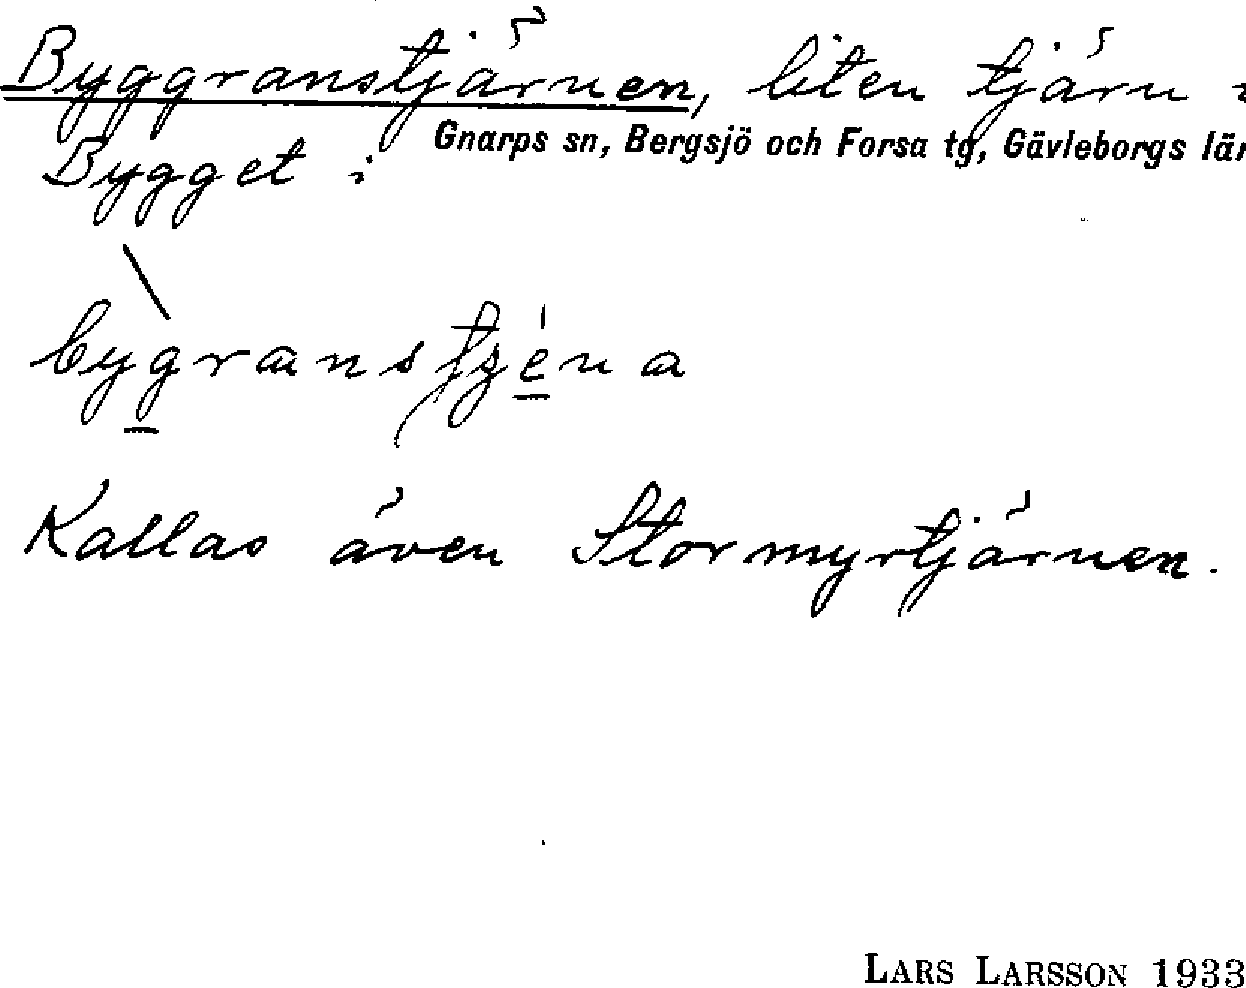 Byggranstjärnen, liten tjärn i
Bygget i Gnarps sn, Bergsjö och Forsa tg, Gävleborgs län
bygranstzéna
Kallas även Stormyrtjärnen.
LARS LARSSON 1933